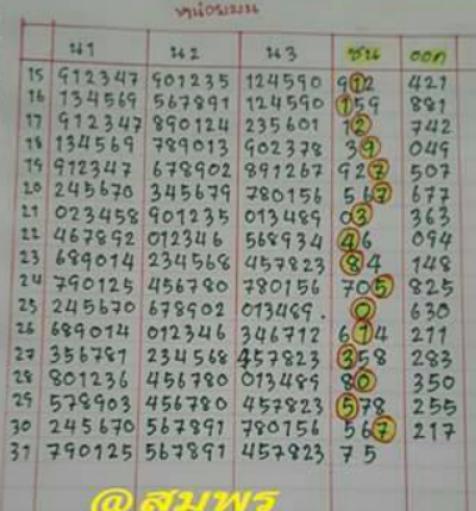 หน่อยบน
น1 น2 น3 ชน ออก
15 912347 901235 124590 912 421
16 134569 567891 124590 159 881
17 912347 890124 235601 12 742
18 134569 789013 902378 39 049
19 912347 678902 891267 927 507
20 245670 345679 780156 567 677
21 023458 901235 013489 03 363
22 467892 012346 568934 46 094
23 689014 234568 457823 84 148
24 790125 456780 780156 705 825
25 245670 678902 013489. 0 630
26 689014 012346 346712 614 211
27 356781 234568 457823 358 283
28 801236 456780 013489 80 350
29 578903 456780 457823 578 255
30 245670 567891 780156 567 217
31 790125 567891 457823 75
@สมพร